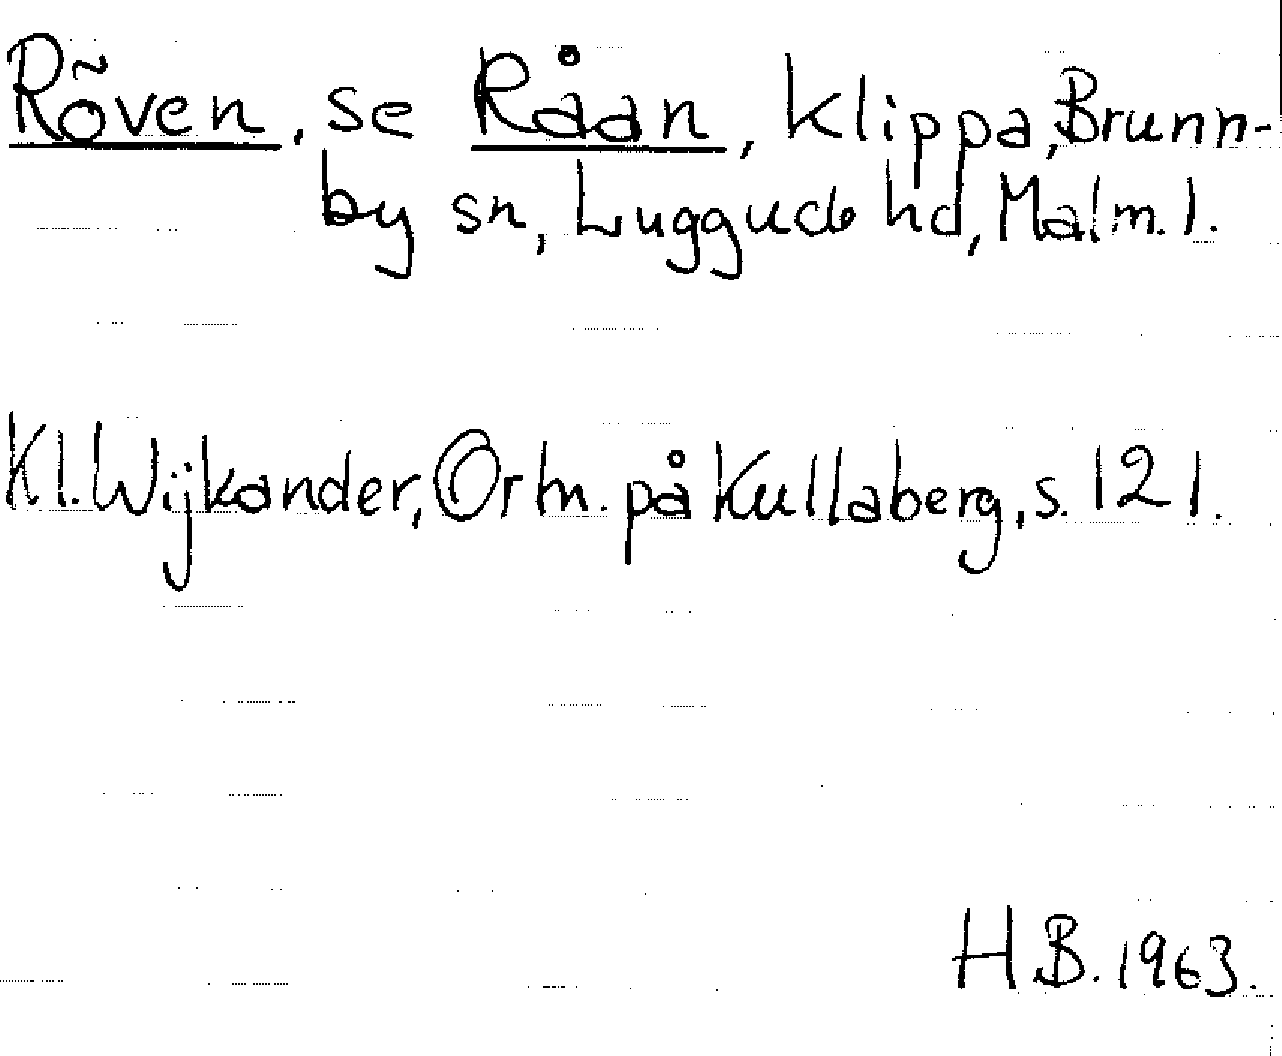 Rõven, se Råan, klippa, Brunn-
by sn, Luggude hd, Malm. l.
Kl. Wijkander, Ortn. på Kullaberg, s. 121.
H.B. 1963.